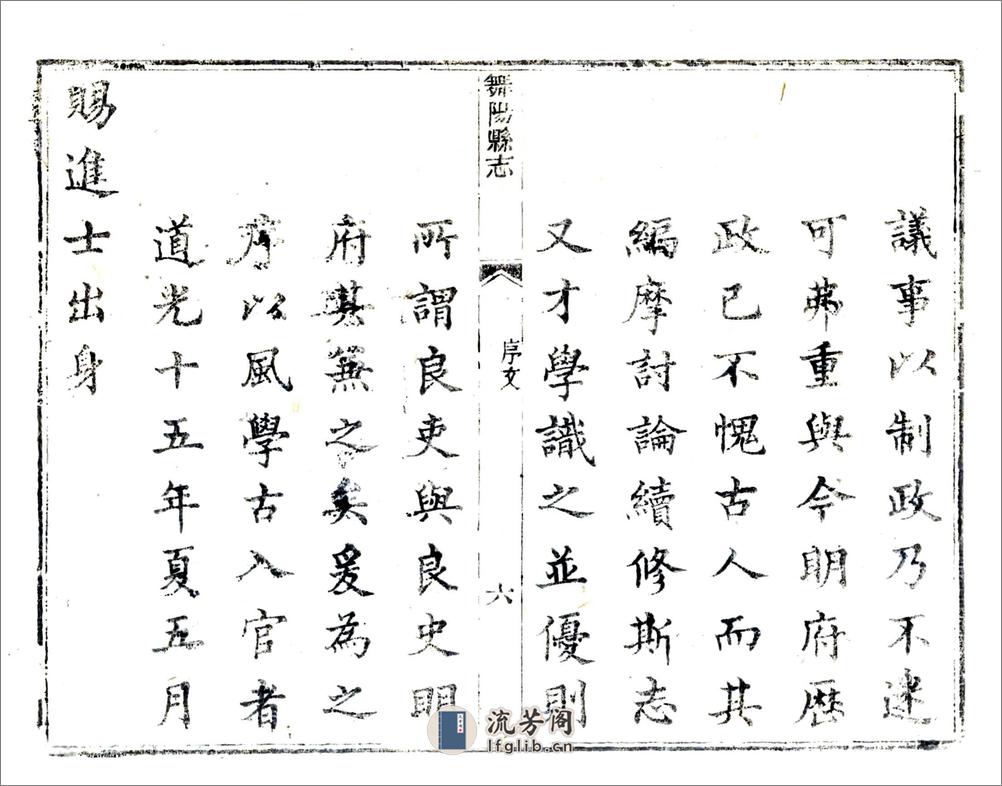 議事以制政乃不迷
可弗重與今明府歷
政已不愧古人而其
編摩討論續修斯志
又才學識之並優則
舞陽縣志
序文
六
所謂良吏與良史明
府其兼之矣爰為之
序以風學古入官者
道光十五年夏五月
賜進士出身
流芳阁
lfglib.cn